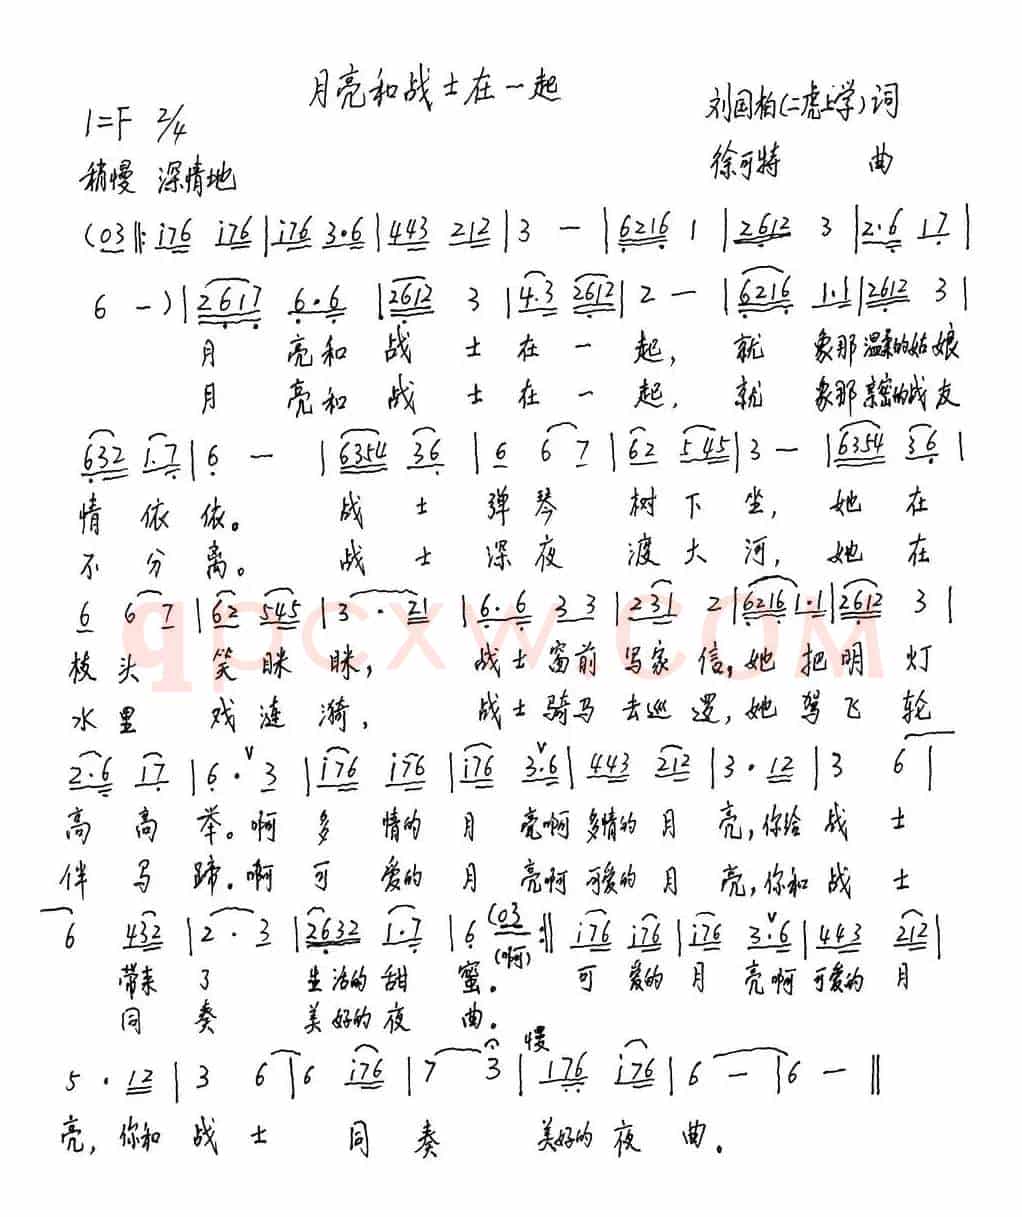 月亮和战士在一起
1=F 2/4
刘国柏(二虎上学)词
稍慢 深情地
徐可特 曲
(03‖:i76 i76|i76 3·6|443 212|3 —|6216 1|2612 3|2·6 17|
6 —)|2617 6·6|2612 3|4·3 2612|2 —|6216 1·1|2612 3|
月 亮和 战 士 在 一 起, 就 象那 温柔的姑娘
月 亮和 战 士 在 一 起, 就 象那 亲密的战友
632 1·7|6 —|6354 36|6 6 7|62 545|3 —|6354 36|
情 依 依。 战 士 弹 琴 树 下 坐, 她 在
不 分 离。 战 士 深 夜 渡 大 河, 她 在
6 6 7|62 545|3 · 21|6·6 3 3|231 2|6216 1·1|2612 3|
枝 头 笑 眯 眯, 战士 窗前 写家 信, 她 把 明 灯
水 里 戏 涟 漪, 战士 骑马 去巡 逻, 她 驾 飞 轮
2·6 17|6·v3|i76 i76|i76 3·v6|443 212|3·12|3 6|
高 高 举。啊 多 情的 月 亮啊 多情的 月 亮,你给 战 士
伴 马 蹄。啊 可 爱的 月 亮啊 可爱的 月 亮,你和 战 士
6 432|2 · 3|2632 1·7|6 (03:‖i76 i76|i76 3·v6|443 212|
(啊)
带来 了 生活的 甜 蜜。 可 爱的 月 亮啊 可爱的 月
同 奏 美好的 夜 曲。
慢
5 · 12|3 6|6 i76|7 3|176 i76|6 —|6 —‖
亮, 你和 战 士 同 奏 美好的 夜 曲。
qpcxw.com